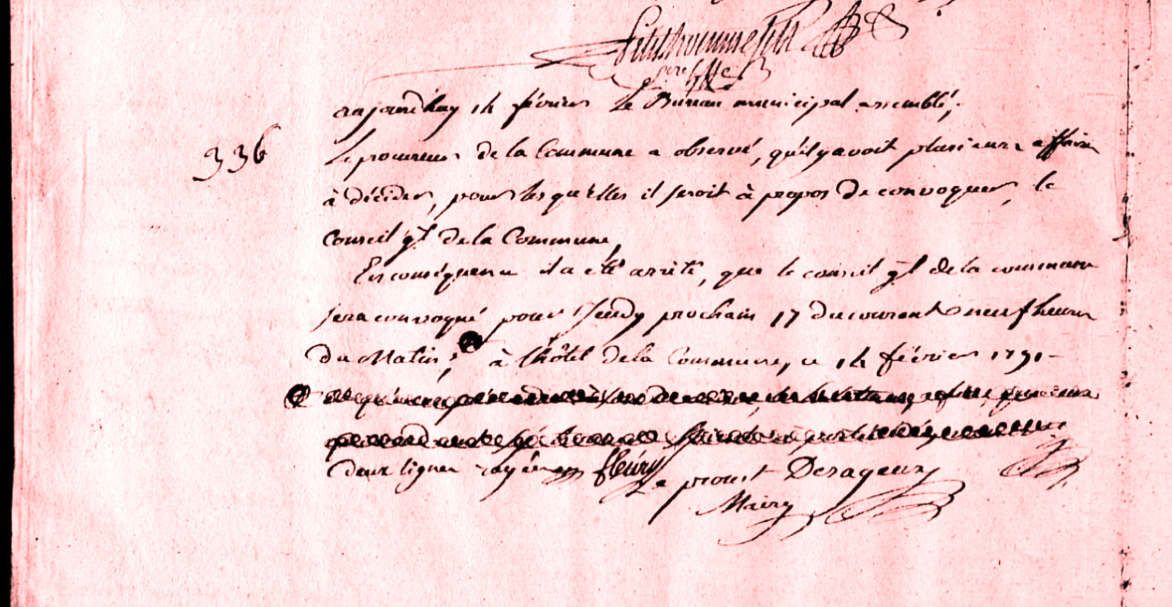 aujourdhuy 14 février le Bureau municipal assemblé,
336
Le procureur de la Commune a observé, qu'il y avoit plusieurs affaires
à décider, pour lesquelles il seroit à propos de convoquer le
Conseil gl de la Commune,
En conséquence il a été arrêté, que le conseil gl de la commune
sera convoqué pour Jeudy prochain 17 du courant neuf heures
du Matin, à l'hôtel de la Commune, ce 14 février 1791
deux lignes rayées fleury
Le proust Desageux
Maire